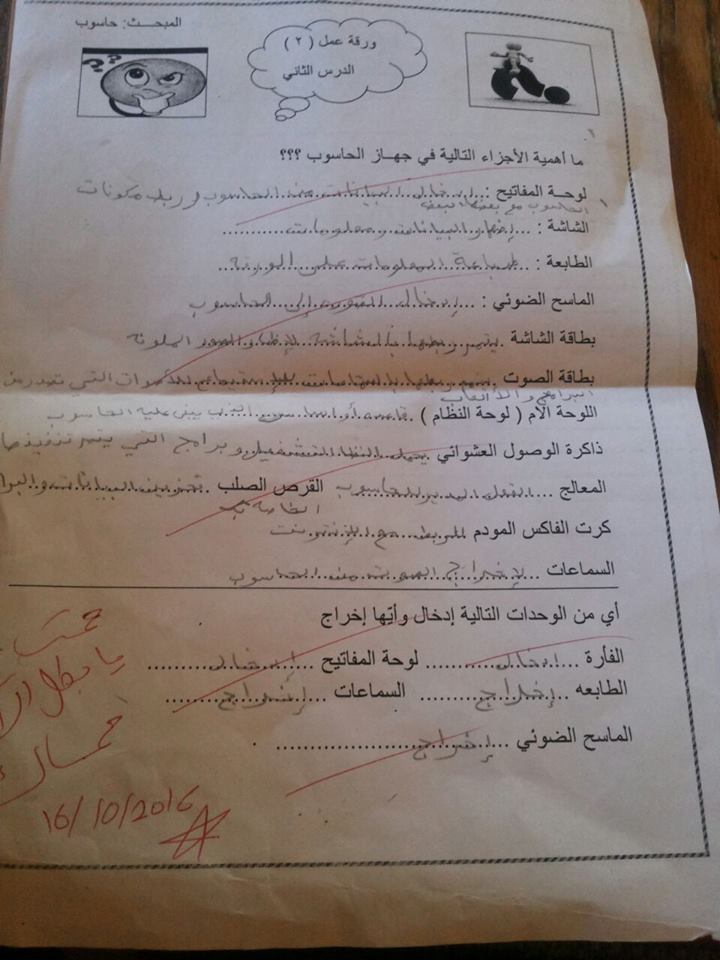 المبحث: حاسوب
ورقة عمل ( ٢ )
الدرس الثاني
??
ما أهمية الأجزاء التالية في جهاز الحاسوب ؟؟؟
لوحة المفاتيح : إدخال البيانات من الحاسوب و ربط مكونات
الحاسوب مع بعضها البعض
الشاشة : إظهار البيانات ومعلومات
الطابعة : طباعة المعلومات على الورقة
الماسح الضوئي : إدخال الصورة إلى الحاسوب
بطاقة الشاشة يتم ربطها بالشاشة لإظهار الصور الملونة
بطاقة الصوت يتم ربطها بالسماعات للإستماع للأصوات التي تصدر من
البرامج والألعاب
اللوحة الأم ( لوحة النظام ) قاعدة أو أساس الذي يبنى عليه الحاسوب
ذاكرة الوصول العشوائي يحمل النظام التشغيل وبرامج التي يتم تنفيذها
المعالج العقل المدير للحاسوب القرص الصلب تخزين البيانات والبرا
الخاصة بك
كرت الفاكس المودم للربط مع الإنترنت
السماعات لإخراج الصوت من الحاسوب
أي من الوحدات التالية إدخال وأيّها إخراج
الفأرة إدخال لوحة المفاتيح إدخال
الطابعه إخراج السماعات إخراج
الماسح الضوئي إخراج
16/10/2016